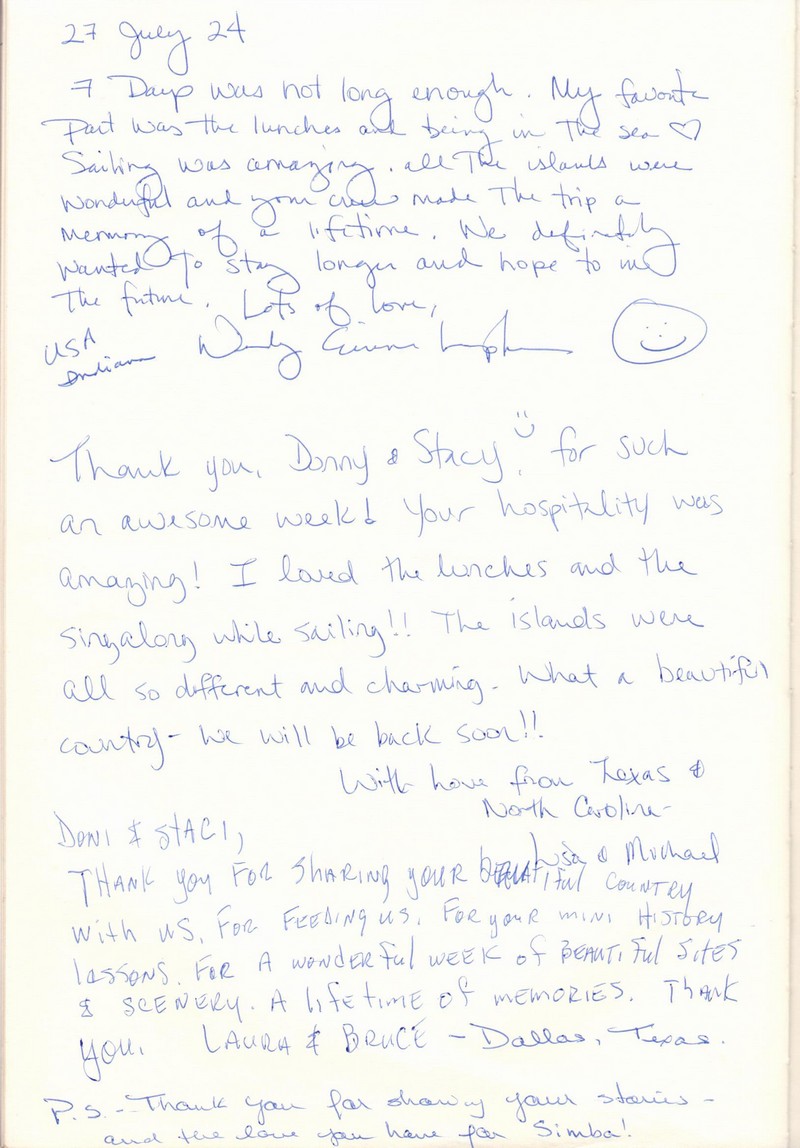 27 July 24
7 Days was not long enough. My favorite
Part was the lunches and being in the sea ♡
Sailing was amazing. all The islands were
wonderful and your crew made The trip a
memory of a lifetime. We definitely
wanted To stay longer and hope to in
The future. Lots of love,
USA
Indiana
Wendy
Thank you, Donny & Stacy, for such
an awesome week! Your hospitality was
amazing! I loved the lunches and the
singalong while sailing!! The islands were
all so different and charming. What a beautiful
country - we will be back soon!!
With love from Texas &
North Carolina -
Lisa & Michael
DONI & STACI,
THANK YOU FOR SHARING YOUR BEAUTIFUL COUNTRY
WITH US, FOR FEEDING US, FOR YOUR MINI HISTORY
LESSONS. FOR A WONDERFUL WEEK OF BEAUTIFUL SITES
& SCENERY. A LIFETIME OF MEMORIES. THANK
YOU. LAURA & BRUCE - Dallas, Texas.
P.S. - Thank you for sharing your stories -
and the love you have for Simba!